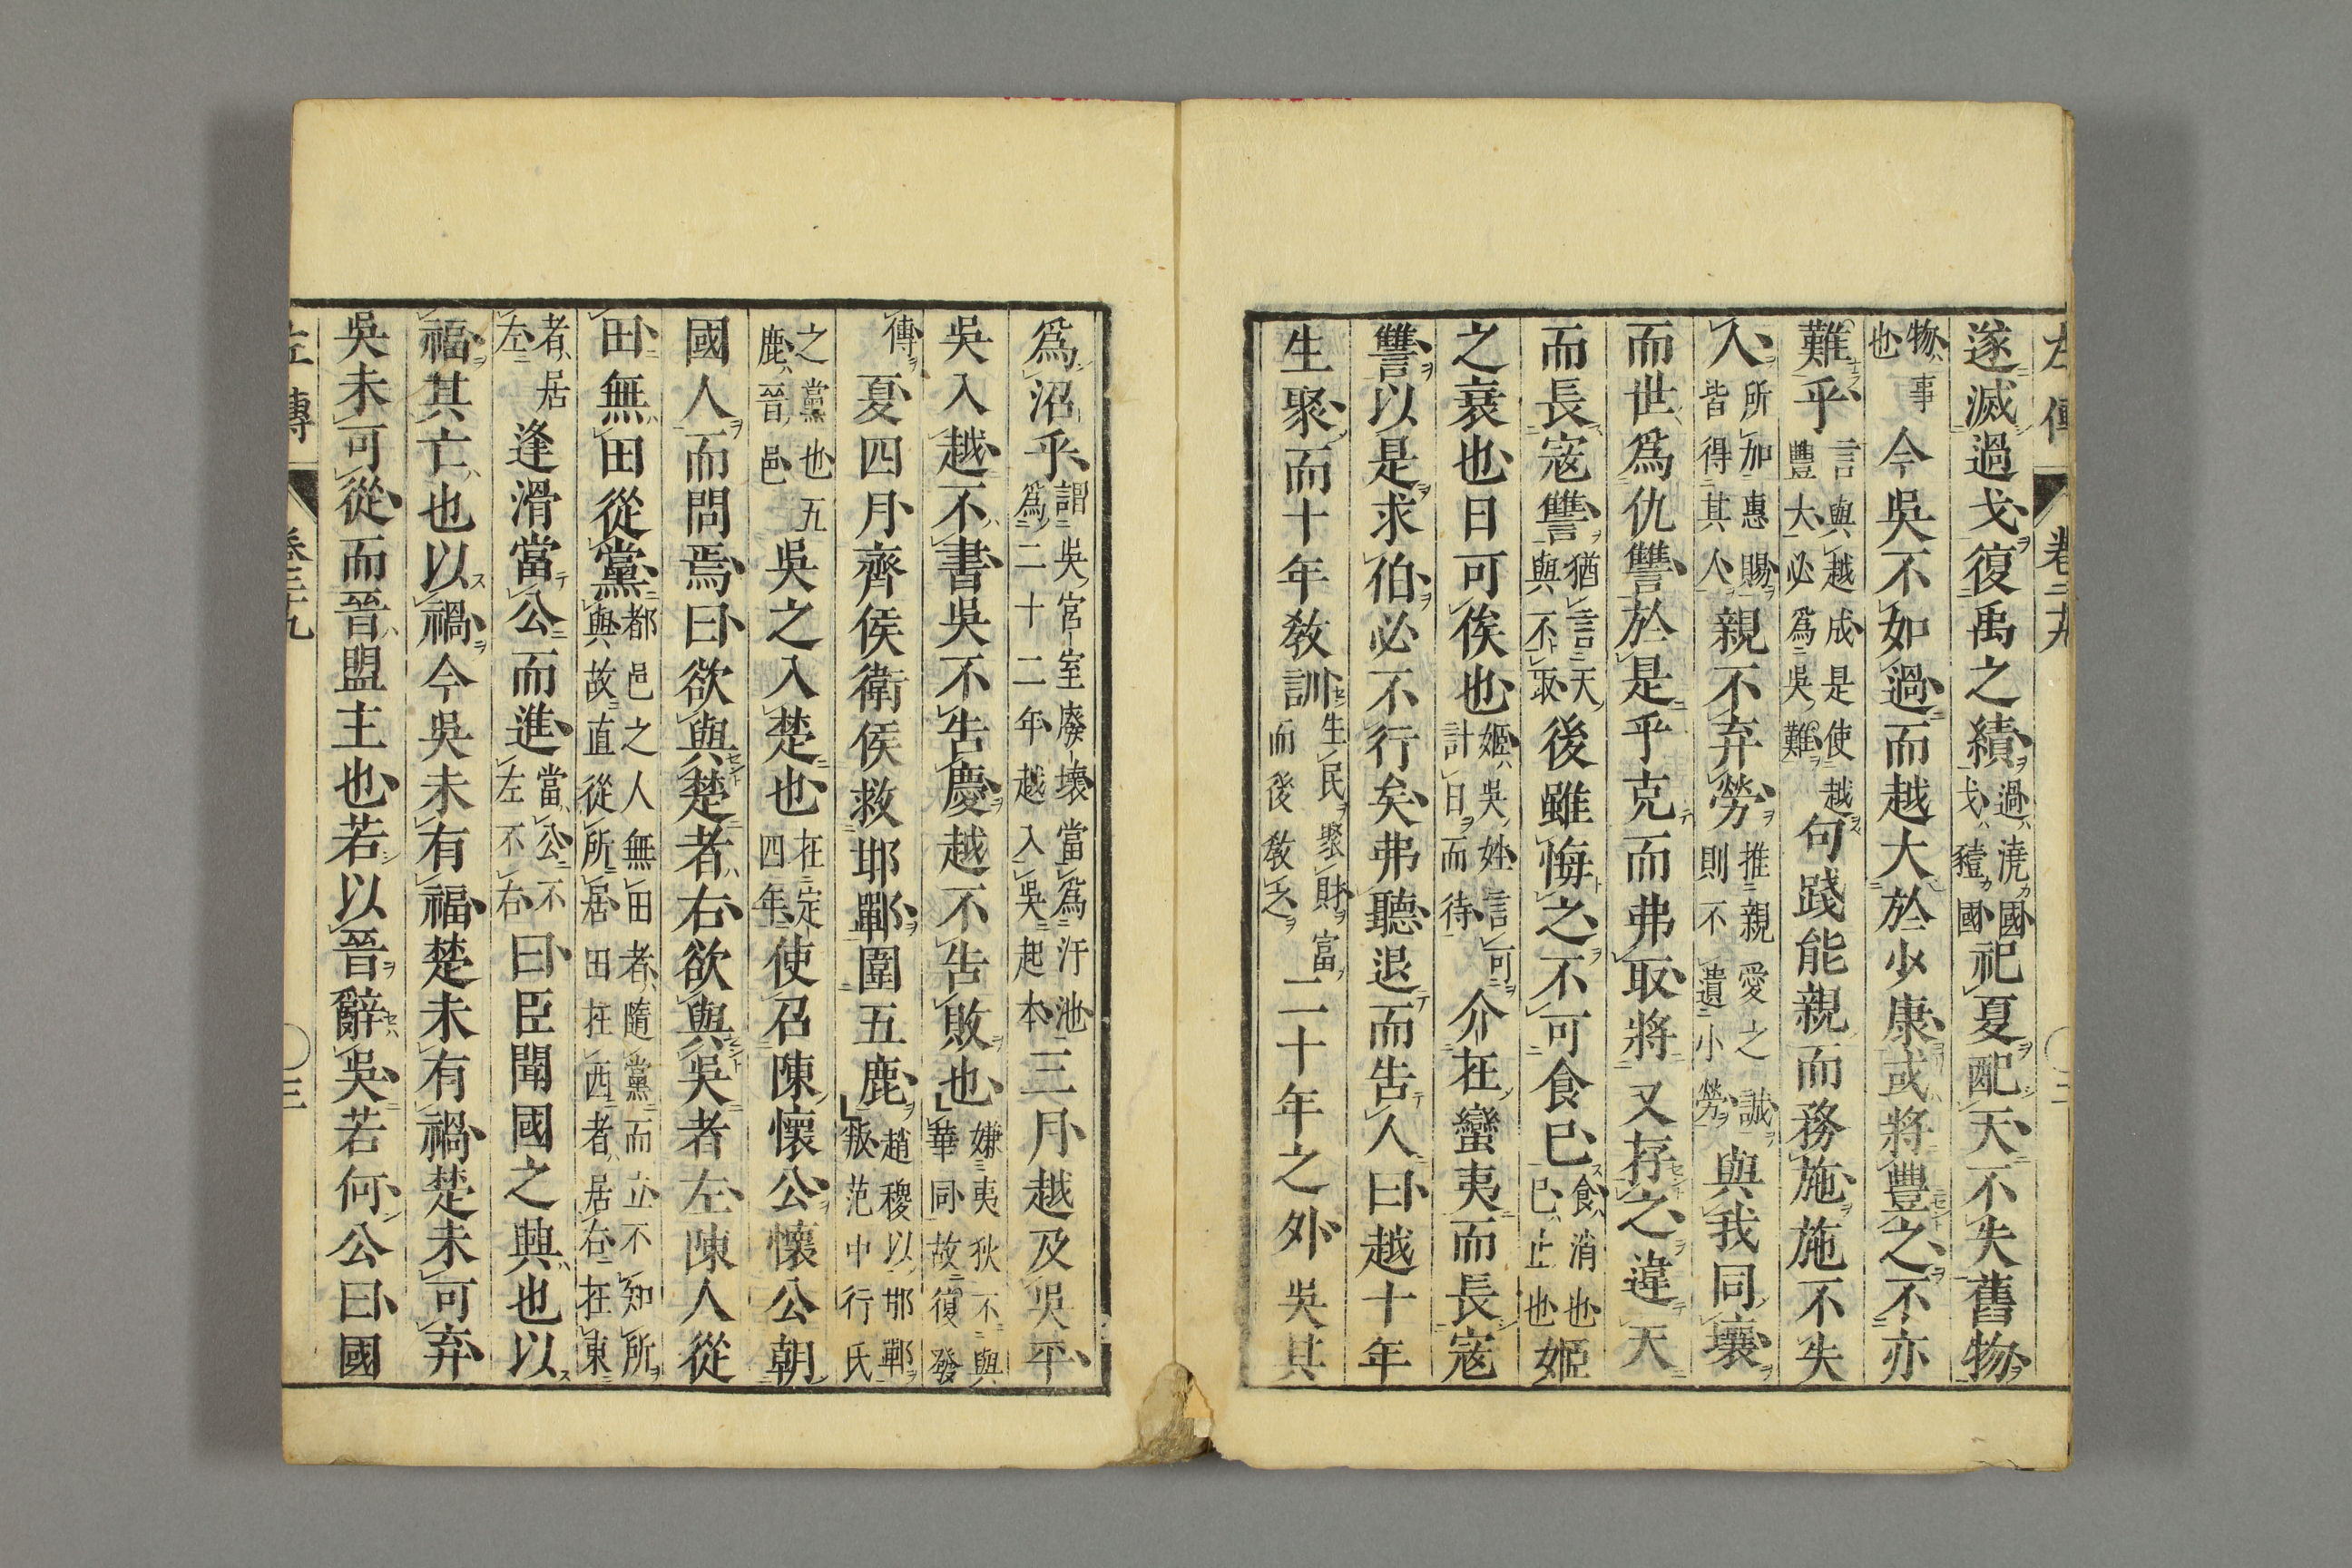 左傳 卷二十九 〇二
遂滅過戈復禹之績過澆國戈豷國祀夏配天不失舊物
物事也今吳不如過而越大於少康或將豐之不亦
難乎言與越成是使越豐大必爲吳難句踐能親而務施施不失
人所加惠賜皆得其人親不弃勞推親愛之誠則不遺小勞與我同壤
而世爲仇讐於是乎克而弗取將又存之違天
而長寇讐猶言天與不取後雖悔之不可食已食消也已止也姬
之衰也日可俟也姬吳姓言可計日而待介在蠻夷而長寇
讐以是求伯必不行矣弗聽退而告人曰越十年
生聚而十年敎訓生民聚財富而後敎之二十年之外吳其
爲沼乎謂吳宮室廢壞當爲汙池爲二十二年越入吳起本三月越及吳平
吳入越不書吳不告慶越不告敗也嫌夷狄不與華同故復發
傳夏四月齊侯衛侯救邯鄲圍五鹿趙稷以邯鄲叛范中行氏
之黨也五鹿晉邑吳之入楚也在定四年使召陳懷公懷公朝
國人而問焉曰欲與楚者右欲與吳者左陳人從
田無田從黨都邑之人無田者隨黨而立不知所與故直從所居田在西者居右在東
者居左逢滑當公而進當公不左不右曰臣聞國之興也以
福其亡也以禍今吳未有福楚未有禍楚未可弃
吳未可從而晉盟主也若以晉辭吳若何公曰國
左傳 卷二十九 〇三